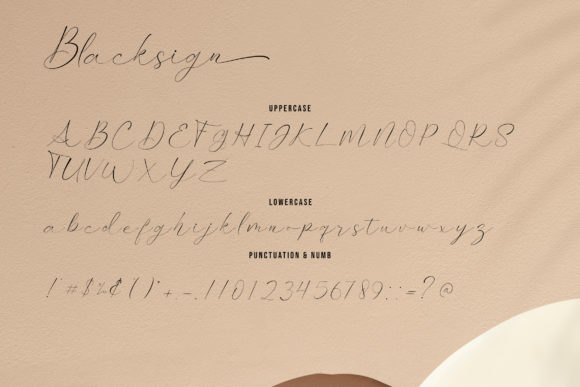 Blacksign
UPPERCASE
ABCDEFGHIJKLMNOPQRS
TUVWXYZ
LOWERCASE
abcdefghijklmnopqrstuvwxyz
PUNCTUATION & NUMB
! #$%¢()*+.-./10123456789:;=?@